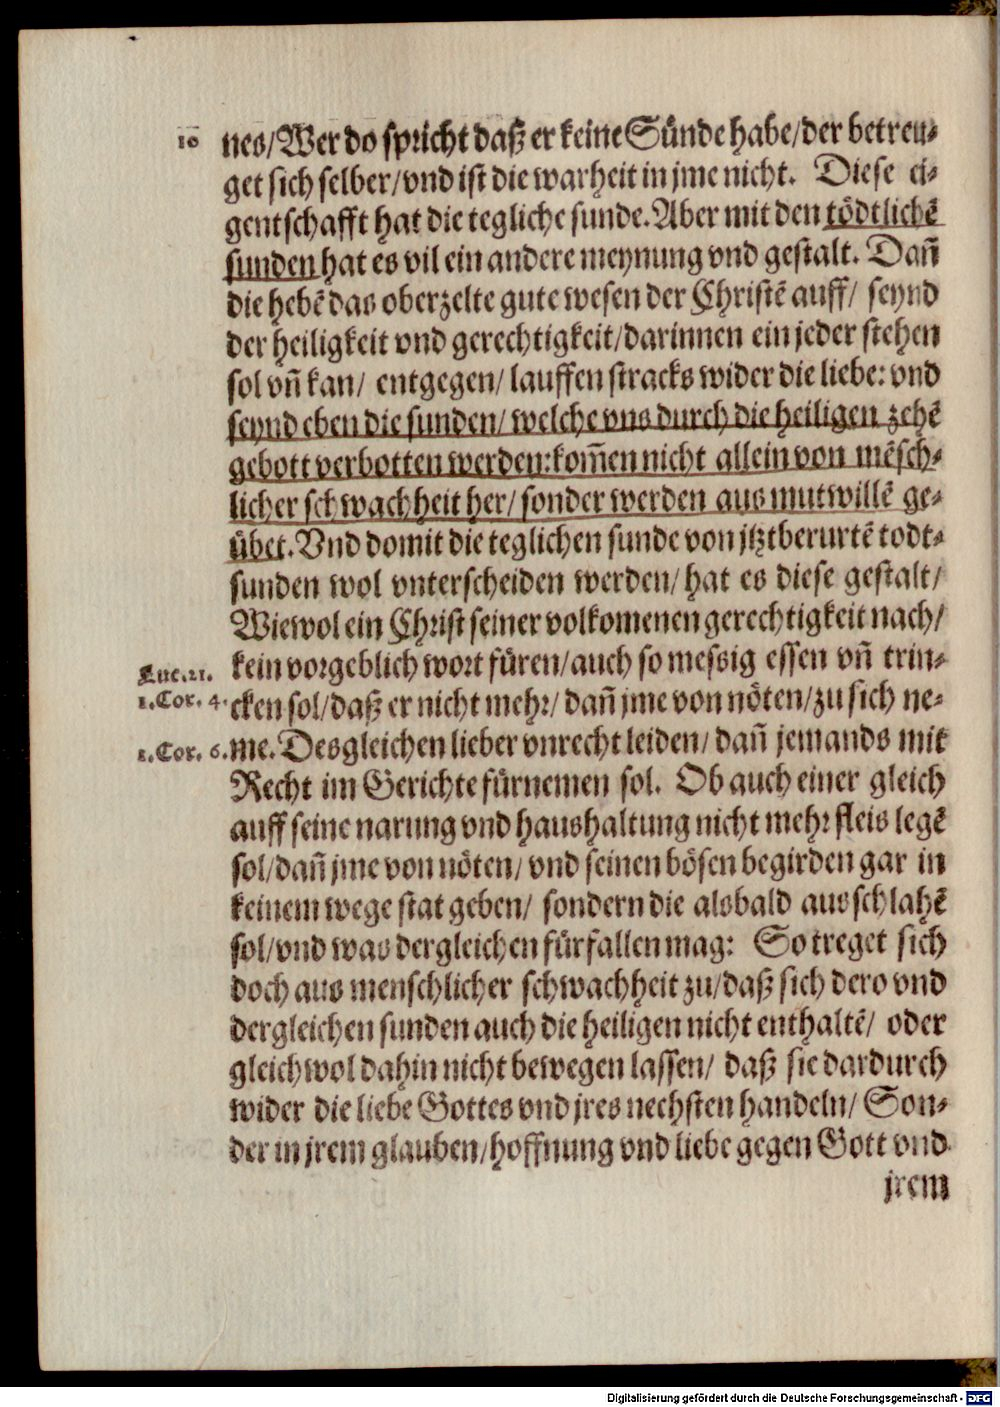 10 nes/Wer do spricht daß er keine Sünde habe/der betreu⸗
get sich selber/vnd ist die warheit in jme nicht. Diese ei⸗
gentschafft hat die tegliche sunde. Aber mit den tödtlichē
sunden hat es vil ein andere meynung vnd gestalt. Dañ
die hebē das oberzelte gute wesen der Christē auff/ seynd
der heiligkeit vnd gerechtigkeit/darinnen ein jeder stehen
sol vñ kan/ entgegen/ lauffen stracks wider die liebe: vnd
seynd eben die sunden/ welche vns durch die heiligen zehē
gebott verbotten werden: kom̃en nicht allein von mēsch⸗
licher schwachheit her/ sonder werden aus mutwillē ge⸗
übet. Vnd domit die teglichen sunde von jtztberurtē todt⸗
sunden wol vnterscheiden werden/ hat es diese gestalt/
Wiewol ein Christ seiner volkomenen gerechtigkeit nach/
Luc. 21. kein vorgeblich wort füren/auch so messig essen vñ trin⸗
1. Cor. 4. cken sol/daß er nicht mehr/ dañ jme von nöten/zu sich ne⸗
1. Cor. 6. me. Desgleichen lieber vnrecht leiden/ dañ jemands mit
Recht im Gerichte fürnemen sol. Ob auch einer gleich
auff seine narung vnd haushaltung nicht mehr fleis legē
sol/dañ jme von nöten/ vnd seinen bösen begirden gar in
keinem wege stat geben/ sondern die alsbald ausschlahē
sol/vnd was dergleichen fürfallen mag: So treget sich
doch aus menschlicher schwachheit zu/daß sich dero vnd
dergleichen sunden auch die heiligen nicht enthaltē/ oder
gleichwol dahin nicht bewegen lassen/ daß sie dardurch
wider die liebe Gottes vnd jres nechsten handeln/ Son⸗
der in jrem glauben/hoffnung vnd liebe gegen Gott vnd
jrem
Digitalisierung gefördert durch die Deutsche Forschungsgemeinschaft - DFG